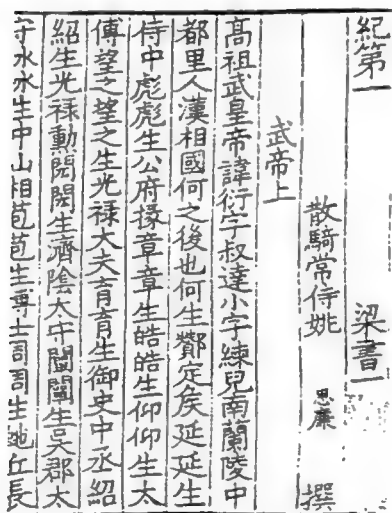 紀第一 梁書一
散騎常侍姚 思廉 撰
武帝上
高祖武皇帝諱衍字叔達小字練兒南蘭陵中
都里人漢相國何之後也何生酇定矦延延生
侍中彪彪生公府掾章章生皓皓生仰仰生太
傅望之望之生光祿大夫育育生御史中丞紹
紹生光祿勳閎閎生濟陰太守闡闡生吳郡太
守冰冰生中山相苞苞生博士周周生虵丘長